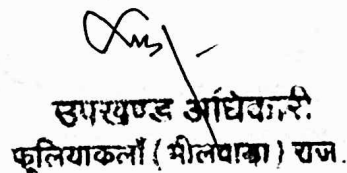 उपखण्ड अधिकारी
फूलियाकलाँ ( भीलवाडा ) राज.